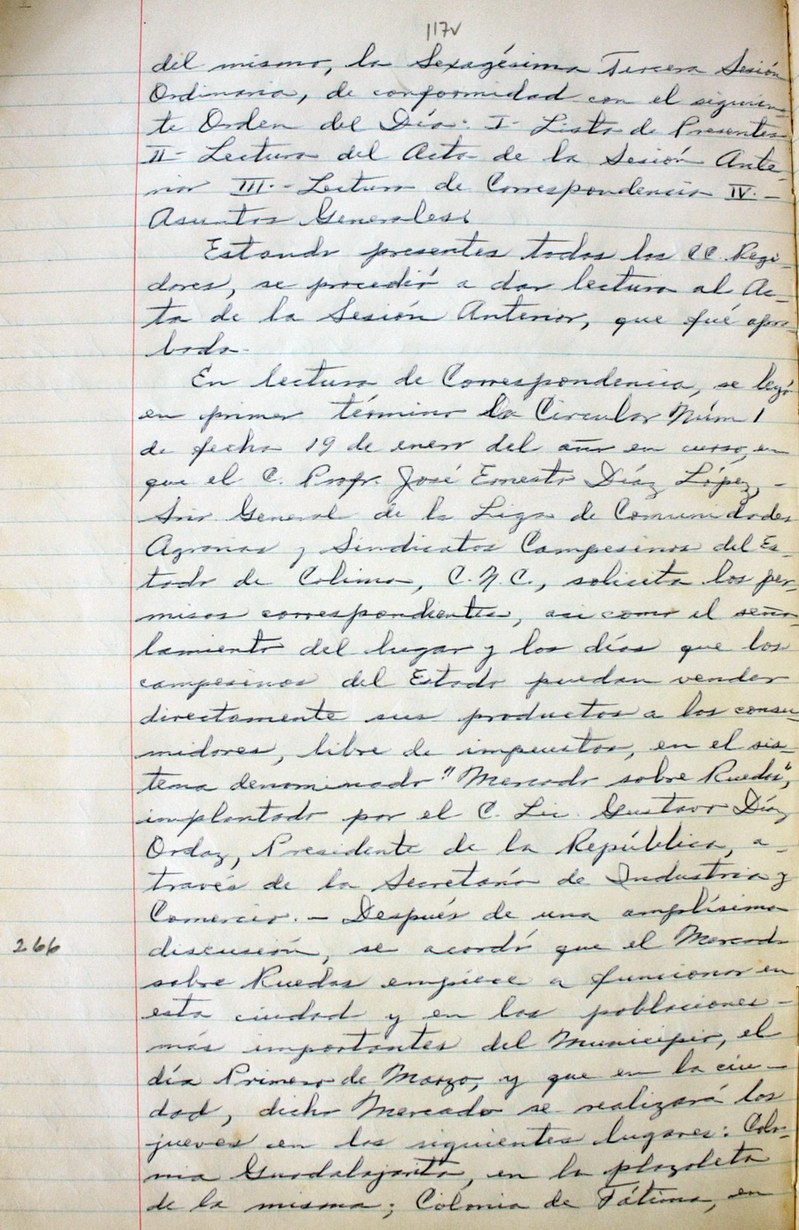 117v
del mismo, la Sexagésima Tercera Sesión
Ordinaria, de conformidad con el siguien-
te Orden del Día: I- Lista de Presentes
II- Lectura del Acta de la Sesión Ante-
rior III.- Lectura de Correspondencia IV.-
Asuntos Generales.
Estando presentes todos los CC. Regi-
dores, se procedió a dar lectura al Ac-
ta de la Sesión Anterior, que fué apro-
bada.
En lectura de Correspondencia, se leyó
en primer término la Circular Núm 1
de fecha 19 de enero del año en curso, en
que el C. Profr. José Ernesto Díaz López, -
Srio General de la Liga de Comunidades
Agrarias y Sindicatos Campesinos del Es-
tado de Colima, C.N.C., solicita los per-
misos correspondientes, asi como el seña-
lamiento del lugar y los días que los
campesinos del Estado puedan vender
directamente sus productos a los consu-
midores, libre de impuestos, en el sis-
tema denominado "Mercado sobre Ruedas",
implantado por el C. Lic. Gustavo Díaz
Ordaz, Presidente de la República, a-
través de la Secretaría de Industria y
Comercio. - Después de una amplísima
266
discusión, se acordó que el Mercado
sobre Ruedas empiece a funcionar en
esta ciudad y en las poblaciones -
más importantes del Municipio, el
día Primero de Marzo, y que en la ciu-
dad, dicho Mercado se realizará los
jueves en los siguientes lugares: Colo-
nia Guadalajarita, en la plazoleta
de la misma; Colonia de Fátima, en